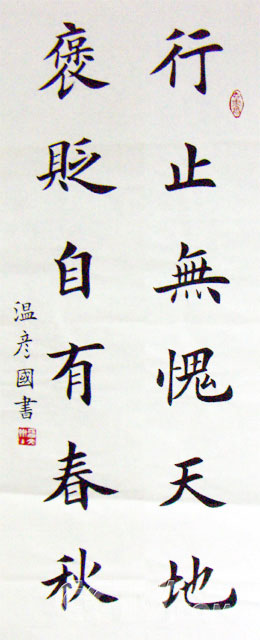 行止無愧天地
褒貶自有春秋
温彦國書